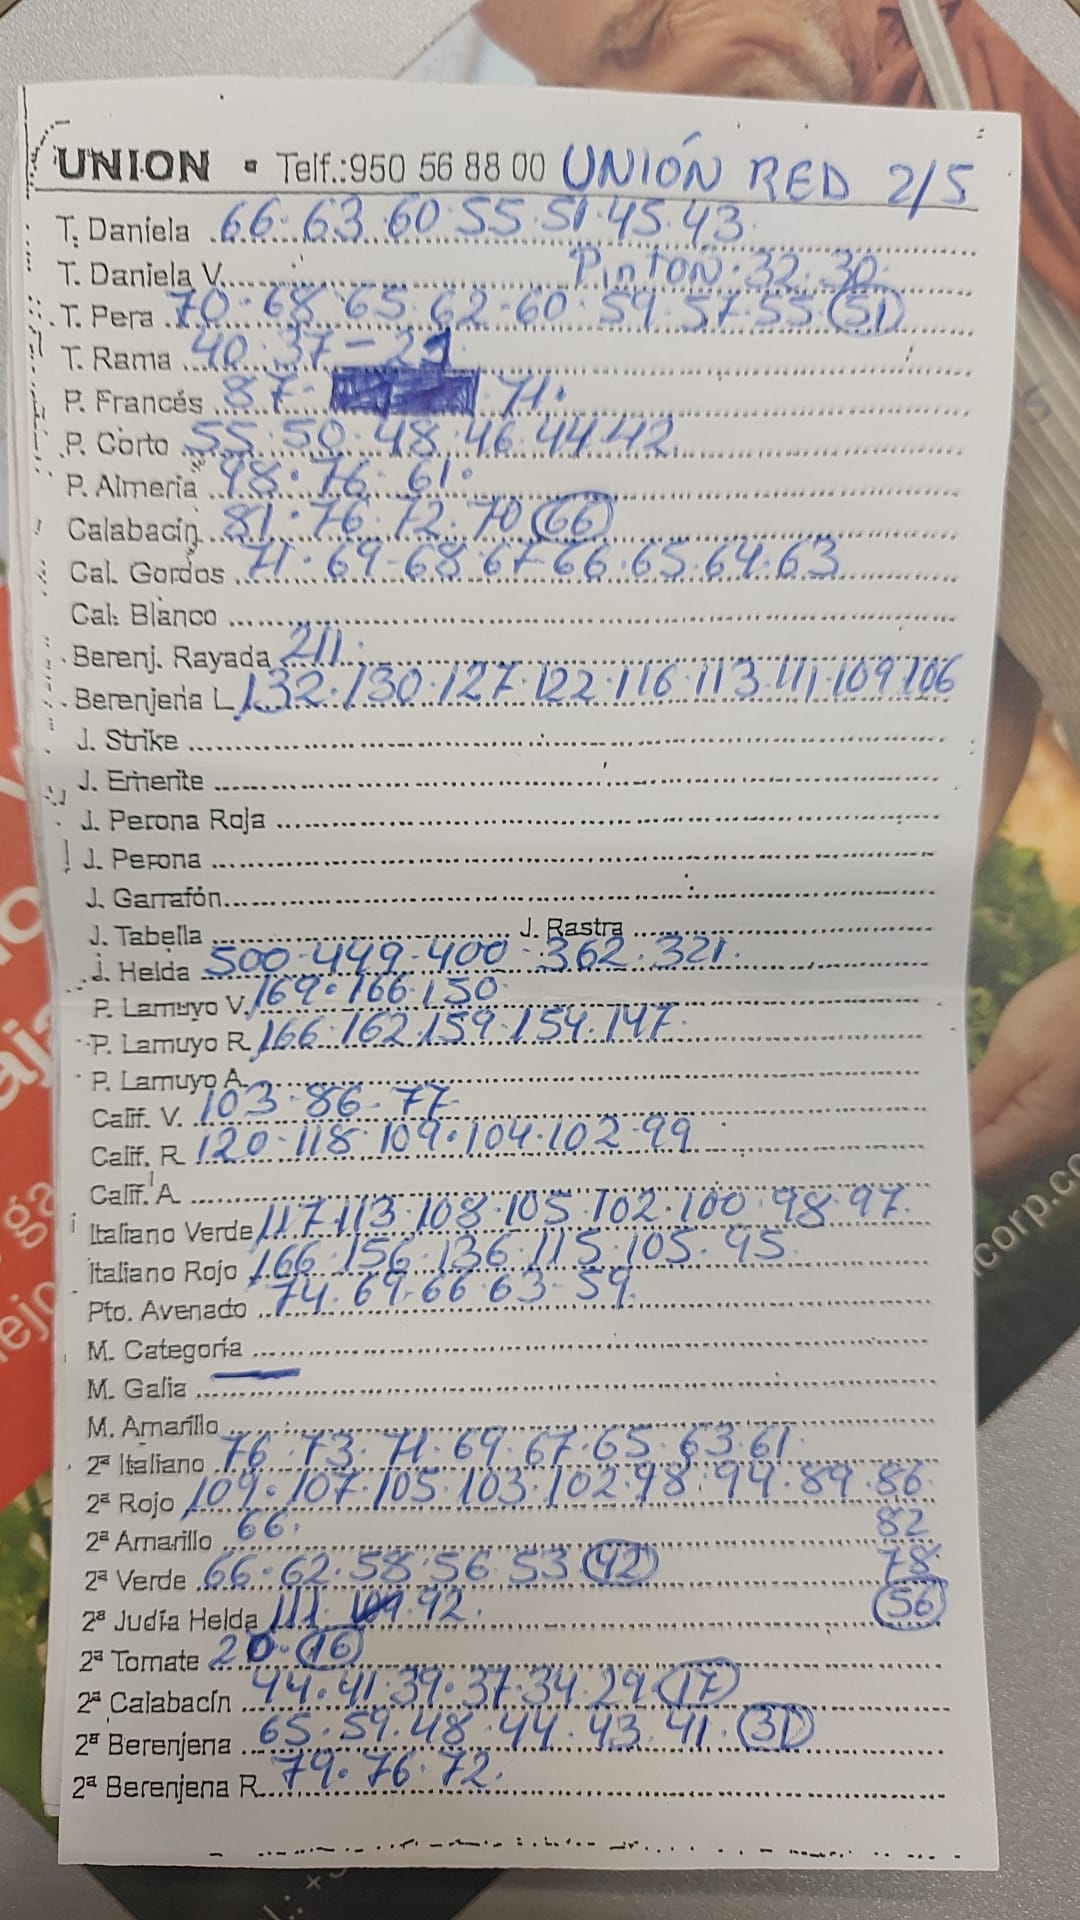 UNION • Telf.:950 56 88 00 UNIÓN RED 2/5
T. Daniela 66. 63. 60. 55. 51. 45. 43.
T. Daniela V. Pinton. 32. 30.
T. Pera 70. 68. 65. 62. 60. 59. 57. 55. 51
T. Rama 40. 37 -
P. Francés 87. 71.
P. Corto 55. 50. 48. 46. 44. 42.
P. Almeria 98. 76. 61.
Calabacín 81. 76. 72. 70 66
Cal. Gordos 71. 69-68. 67-66. 65. 64. 63
Cal. Blanco
Berenj. Rayada 211.
Berenjena L 132. 130. 127. 122. 116. 113. 111. 109. 106
J. Strike
J. Emerite
J. Perona Roja
J. Perona
J. Garrafón
J. Tabella J. Rastra
J. Helda 500. 449. 400. 362. 321.
P. Lamuyo V. 169. 166. 150.
P. Lamuyo R. 166. 162. 159. 154. 147.
P. Lamuyo A.
Calif. V. 103. 86. 77.
Calif. R 120. 118. 109. 104. 102. 99
Calif. A
Italiano Verde 117. 113. 108. 105. 102. 100. 98. 97.
Italiano Rojo 166. 156. 136. 115. 105. 95.
Pto. Avenado 74. 69. 66. 63. 59.
M. Categoría
M. Galia
M. Amarillo
2ª Italiano 76. 73. 71. 69. 67. 65. 63. 61.
2ª Rojo 109. 107. 105. 103. 102. 98. 94. 89. 86.
2ª Amarillo 66. 82
2ª Verde 66. 62. 58. 56. 53 42 78
2ª Judía Helda 111. 92. 56
2ª Tomate 20. 16
2ª Calabacín 44. 41. 39. 37. 34. 29 17
2ª Berenjena 65. 59. 48. 44. 43. 41. 31
2ª Berenjena R 79. 76. 72.
corp.co